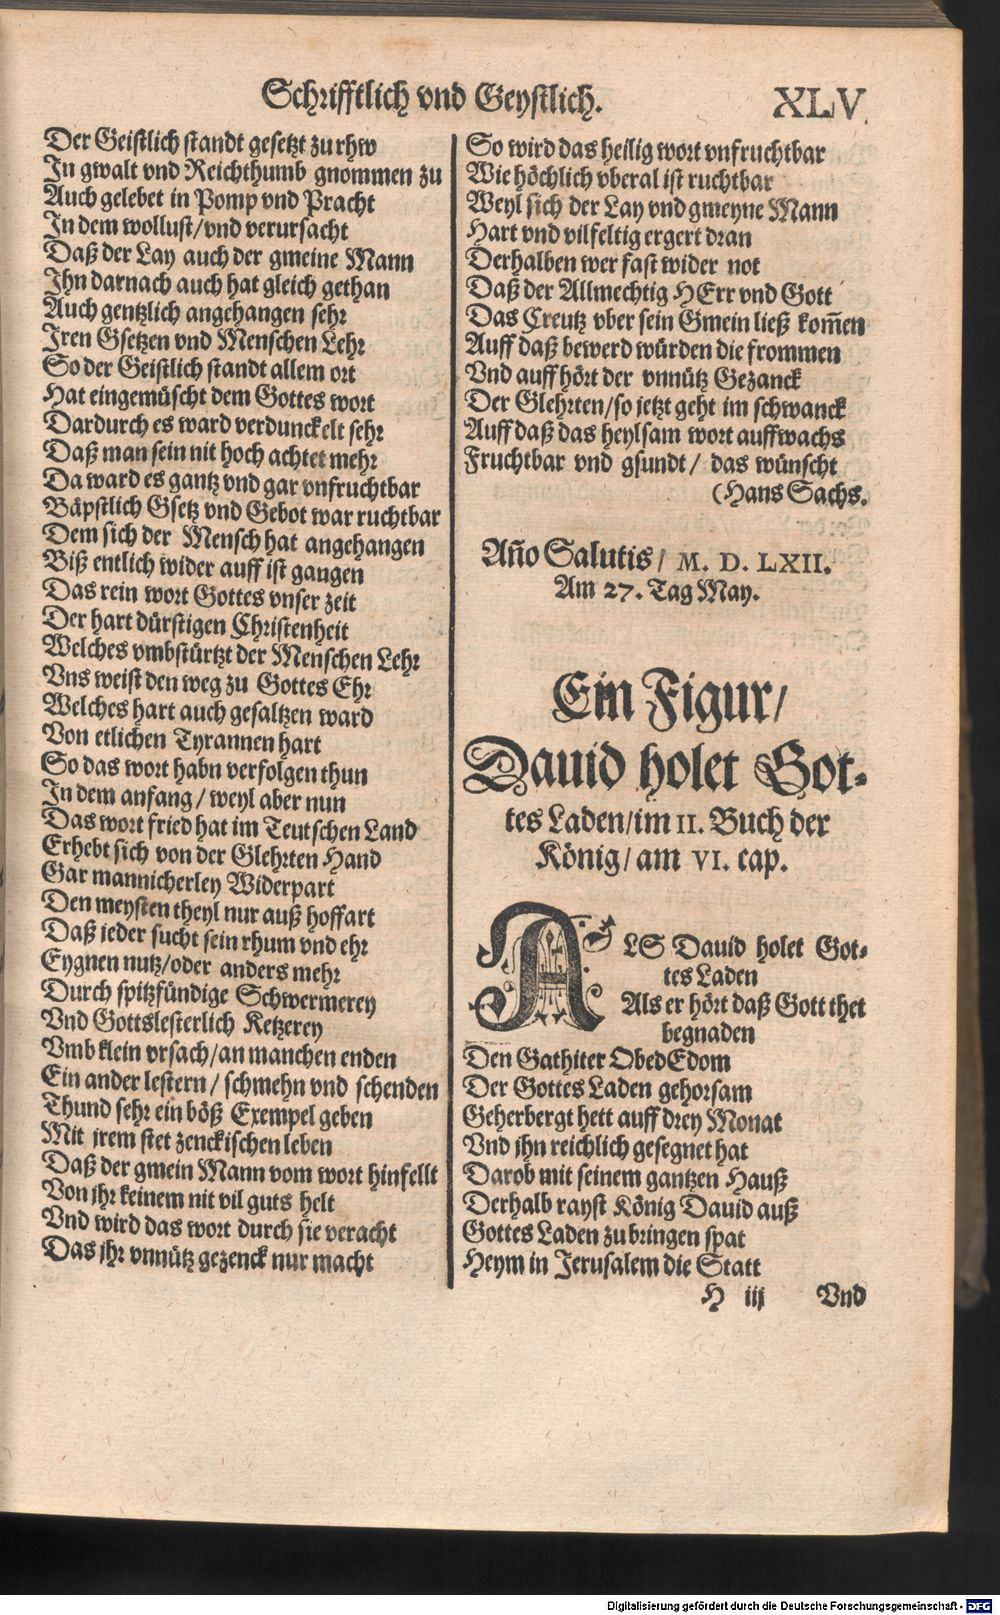 Schrifftlich vnd Geystlich. XLV.
Der Geistlich standt gesetzt zu rhw
In gwalt vnd Reichthumb gnommen zu
Auch gelebet in Pomp vnd Pracht
In dem wollust/vnd verursacht
Daß der Lay auch der gmeine Mann
Ihn darnach auch hat gleich gethan
Auch gentzlich angehangen sehr
Iren Gsetzen vnd Menschen Lehr
So der Geistlich standt allem ort
Hat eingemüscht dem Gottes wort
Dardurch es ward verdunckelt sehr
Daß man sein nit hoch achtet mehr
Da ward es gantz vnd gar vnfruchtbar
Bäpstlich Gsetz vnd Gebot war ruchtbar
Dem sich der Mensch hat angehangen
Biß entlich wider auff ist gangen
Das rein wort Gottes vnser zeit
Der hart dürstigen Christenheit
Welches vmbstürtzt der Menschen Lehr
Vns weist den weg zu Gottes Ehr
Welches hart auch gesaltzen ward
Von etlichen Tyrannen hart
So das wort habn verfolgen thun
In dem anfang/ weyl aber nun
Das wort fried hat im Teutschen Land
Erhebt sich von der Glehrten Hand
Gar mannicherley Widerpart
Den meysten theyl nur auß hoffart
Daß jeder sucht sein rhum vnd ehr
Eygnen nutz/oder anders mehr
Durch spitzfündige Schwermerey
Vnd Gottslesterlich Ketzerey
Vmb klein vrsach/an manchen enden
Ein ander lestern/ schmehn vnd schenden
Thund sehr ein böß Exempel geben
Mit jrem stet zenckischen leben
Daß der gmein Mann vom wort hinfellt
Von jhr keinem nit vil guts helt
Vnd wird das wort durch sie veracht
Das jhr vnnütz gezenck nur macht
So wird das heilig wort vnfruchtbar
Wie höchlich vberal ist ruchtbar
Weyl sich der Lay vnd gmeyne Mann
Hart vnd vilfeltig ergert dran
Derhalben wer fast wider not
Daß der Allmechtig HErr vnd Gott
Das Creutz vber sein Gmein ließ kom̃en
Auff daß bewerd würden die frommen
Vnd auff hört der vnnütz Gezanck
Der Glehrten/so jetzt geht im schwanck
Auff daß das heylsam wort auffwachs
Fruchtbar vnd gsundt/ das wünscht
(Hans Sachs.
Añno Salutis/ M. D. LXII.
Am 27. Tag May.
Ein Figur/
Dauid holet Got-
tes Laden/im II. Buch der
König/am VI. cap.
ALS Dauid holet Got-
tes Laden
Als er hört daß Gott thet
begnaden
Den Gathiter ObedEdom
Der Gottes Laden gehorsam
Geherbergt hett auff drey Monat
Vnd jhn reichlich gesegnet hat
Darob mit seinem gantzen Hauß
Derhalb rayst König Dauid auß
Gottes Laden zu bringen spat
Heym in Jerusalem die Statt
H iij Vnd
Digitalisierung gefördert durch die Deutsche Forschungsgemeinschaft - DFG